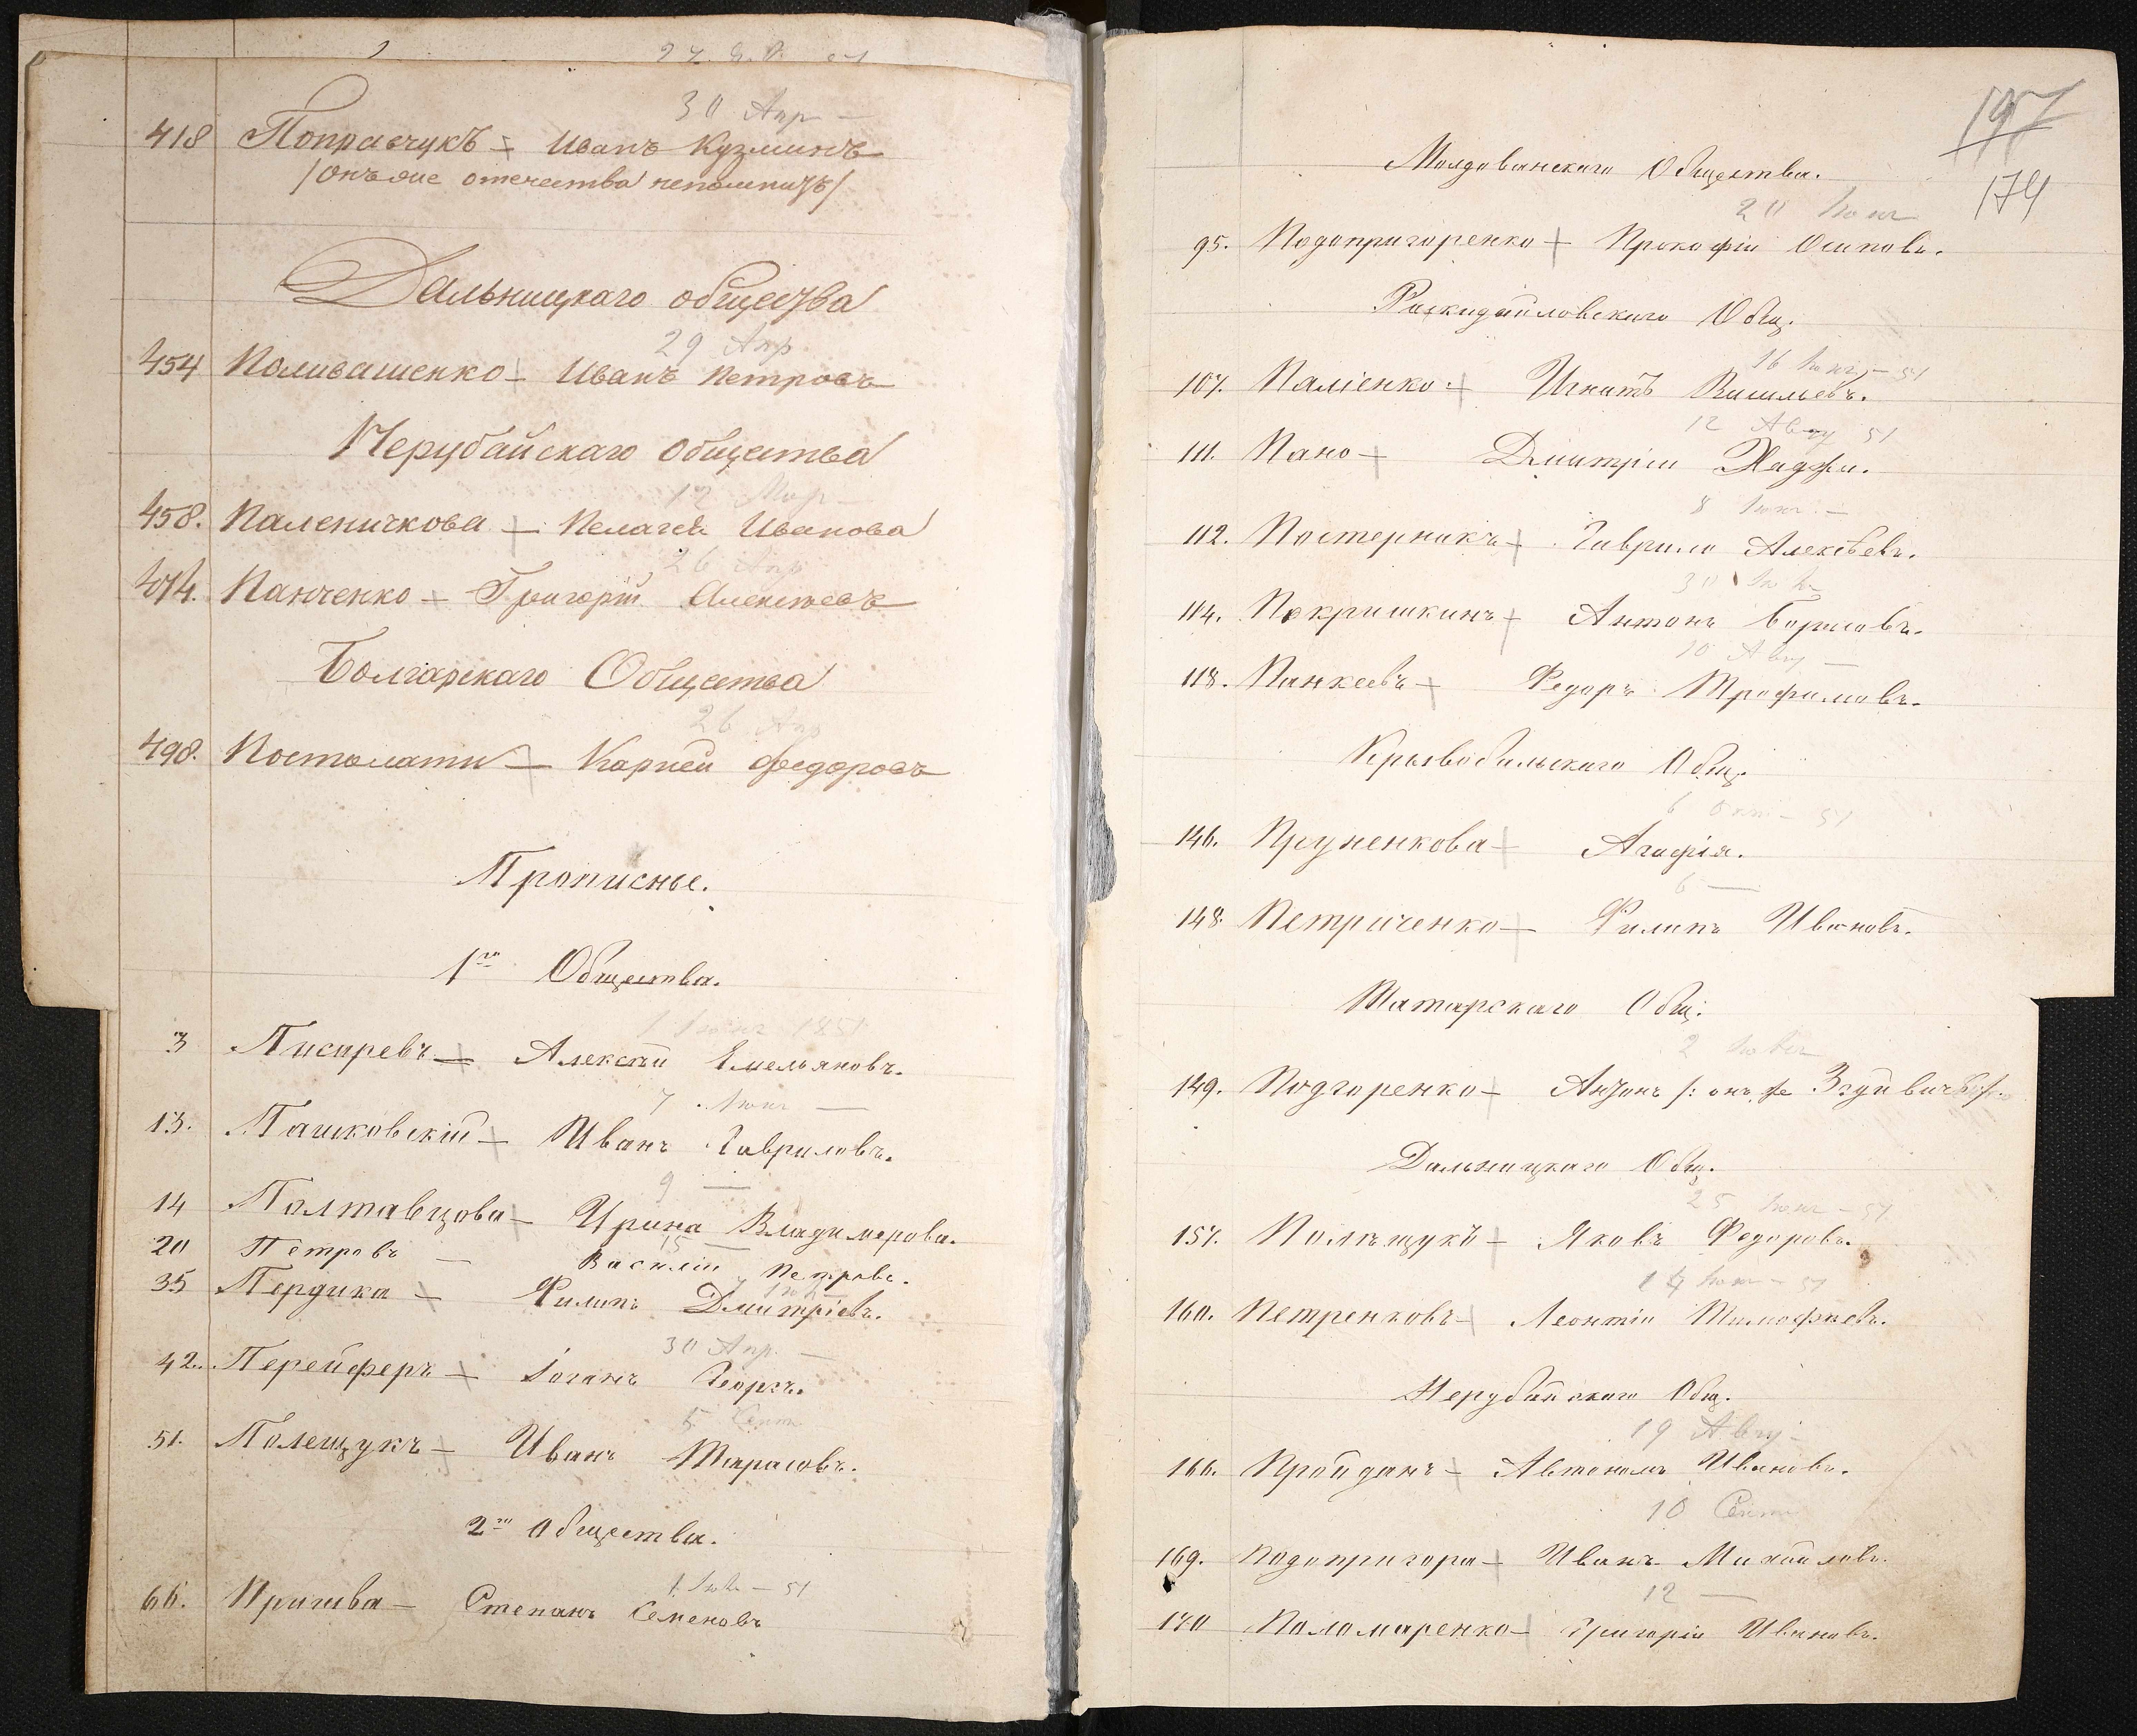 30 Апр —
418 Поправчукъ — Иванъ Кузминъ
/онъ же отечества непомнитъ/
Дальницкаго общества
29 Апр
454 Поливашенко — Иванъ Петровъ
Нерубайскаго Общества
12 Мар —
458. Паленичкова — Пелагея Иванова
26 Апр
474. Панченко — Григорій Алексеевъ
Болгарскаго Общества
26 Апр
498. Постолати — Карпей Федоровъ
Прописные.
1го Общества.
1851
3 Писиревъ — Алексѣй Емельяновъ.
7 Июн —
13. Пашковскій — Иванъ Гавриловъ.
9 —
14 Полтавцова — Ирина Владимерова.
15 —
20 Петровъ — Василій Петровъ.
35 Пердика — Филипъ Дмитріевъ.
30 Апр. —
42. Перейферъ — Іоганъ Георгъ.
5 Сент
51. Полещукъ — Иванъ Тарасовъ.
2го Общества.
1 Июл — 51
66. Пригива — Степанъ Семеновъ
197
174
Молдованскаго Общества.
20 Июн
95. Подопригоренко — Прокофій Осиповъ.
Раскидайловскаго Общ.
16 Июн — 51
107. Паліенко — Игнатъ Васильевъ.
12 Авгу 51
111. Пано — Дмитрій Хаджи.
8 Июн —
112. Постерникъ — Гаврило Алексѣевъ.
30 Июл
114. Покришкинъ — Антонъ Борисовъ.
10 Авгу —
118. Панкеевъ — Федоръ Трофимовъ.
Крывобальскаго Общ.
6 Окт — 51
146. Пруненкова — Агафія.
6 —
148. Петриченко — Филипъ Ивановъ.
Татарскаго Общ.
2
149. Подгоренко — Антонъ /: онъ же
Дальницкаго Общ.
25 Июн — 51
157. Полѣщукъ — Яковъ Федоровъ.
14 Июн — 51
160. Петренковъ — Леонтій Тимофѣевъ.
Нерубайскаго Общ.
19 Авгу —
166. Пройданъ — Автономъ Ивановъ.
10 Сент
169. Подопригора — Иванъ Михайловъ.
12 —
170 Поломаренко — Григорій Ивановъ.